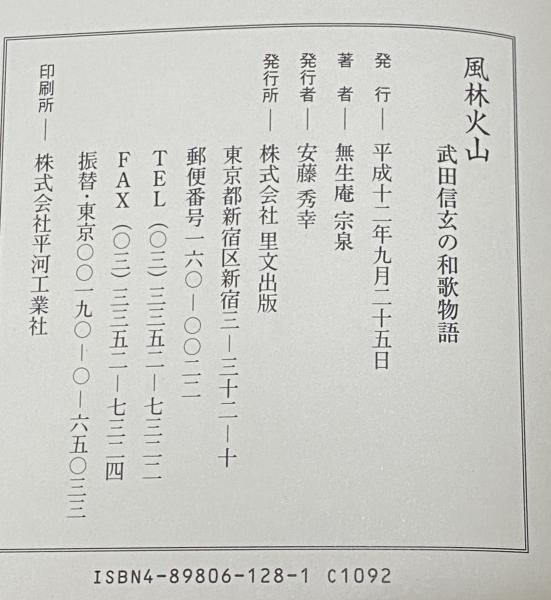 風林火山
武田信玄の和歌物語
発 行― 平成十二年九月二十五日
著 者― 無生庵 宗泉
発行者― 安藤 秀幸
発行所― 株式会社 里文出版
東京都新宿区新宿三―三十二―十
郵便番号一六〇―〇〇二二
TEL（〇三）三三五二―七三二二
FAX（〇三）三三五二―七三二四
振替・東京〇〇一九〇―〇―六五〇三三
印刷所― 株式会社平河工業社
ISBN4-89806-128-1 C1092